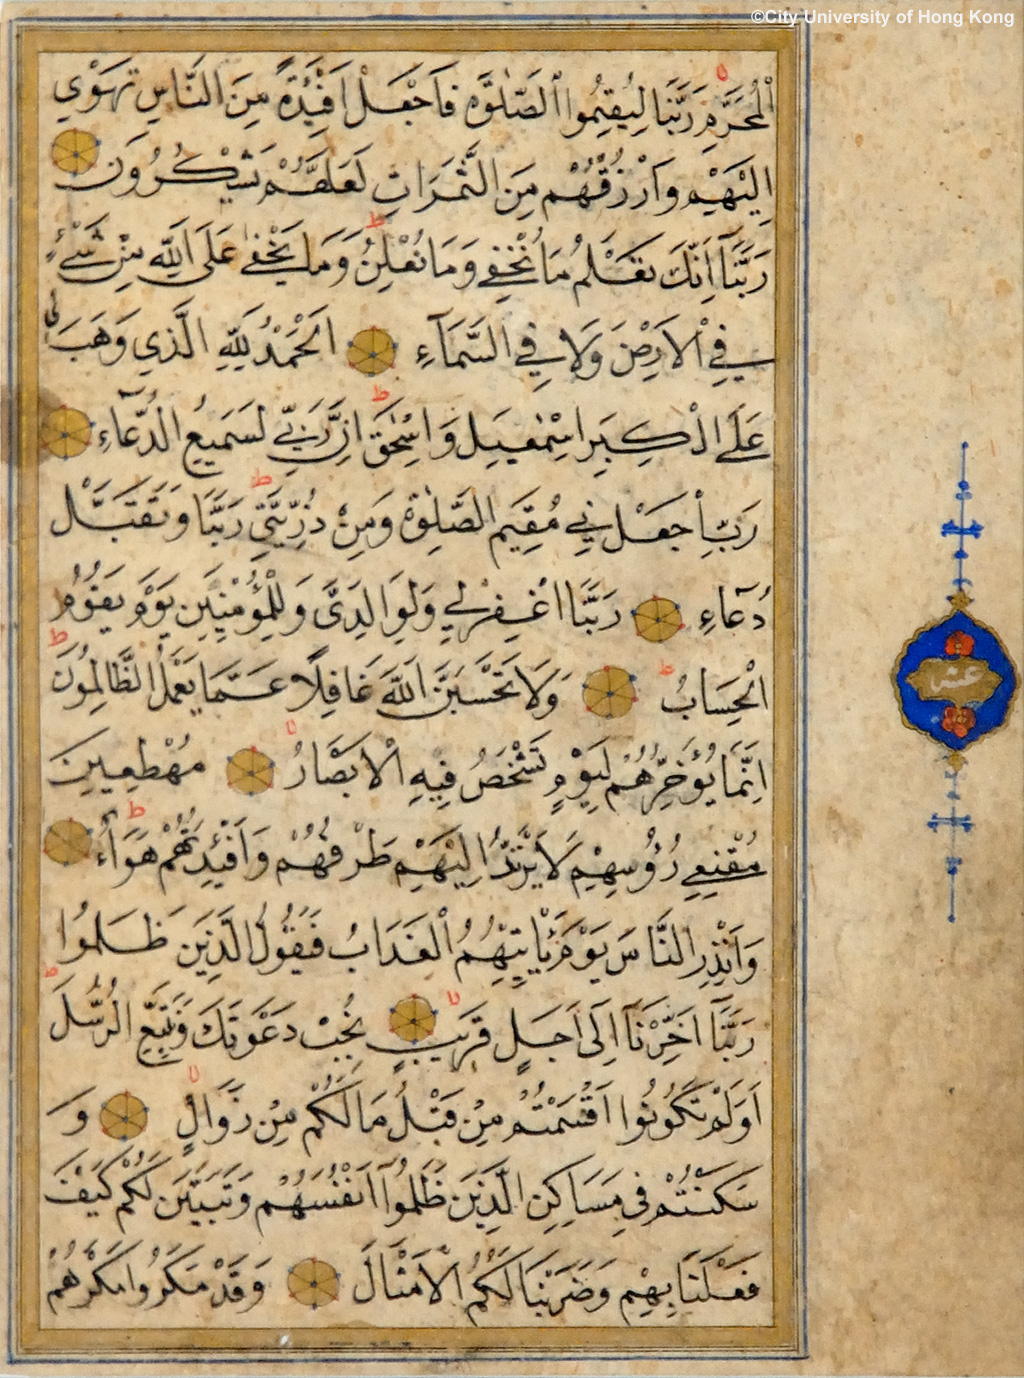 ©City University of Hong Kong
الْمُحَرَّمِ رَبَّنَا لِيُقِيمُوا الصَّلٰوةَ فَاجْعَلْ اَفْئِدَةً مِنَ النَّاسِ تَهْوِي
اِلَيْهِمْ وَارْزُقْهُمْ مِنَ الثَّمَرَاتِ لَعَلَّهُمْ يَشْكُرُونَ
رَبَّنَا اِنَّكَ تَعْلَمُ مَا نُخْفِي وَمَا نُعْلِنُ وَمَا يَخْفٰى عَلَى اللّٰهِ مِنْ شَيْءٍ
فِي الْاَرْضِ وَلَا فِي السَّمَآءِ اَلْحَمْدُ لِلّٰهِ الَّذِي وَهَبَ لِي
عَلَى الْكِبَرِ اِسْمٰعِيلَ وَاِسْحٰقَ اِنَّ رَبِّي لَسَمِيعُ الدُّعَآءِ
رَبِّ اجْعَلْنِي مُقِيمَ الصَّلٰوةِ وَمِنْ ذُرِّيَّتِي رَبَّنَا وَتَقَبَّلْ
دُعَآءِ رَبَّنَا اغْفِرْ لِي وَلِوَالِدَيَّ وَلِلْمُؤْمِنِينَ يَوْمَ يَقُومُ
الْحِسَابُ وَلَا تَحْسَبَنَّ اللّٰهَ غَافِلًا عَمَّا يَعْمَلُ الظَّالِمُونَ
اِنَّمَا يُؤَخِّرُهُمْ لِيَوْمٍ تَشْخَصُ فِيهِ الْاَبْصَارُ مُهْطِعِينَ
مُقْنِعِي رُؤُسِهِمْ لَا يَرْتَدُّ اِلَيْهِمْ طَرْفُهُمْ وَاَفْئِدَتُهُمْ هَوَآءٌ
وَاَنْذِرِ النَّاسَ يَوْمَ يَاْتِيهِمُ الْعَذَابُ فَيَقُولُ الَّذِينَ ظَلَمُوا
رَبَّنَآ اَخِّرْنَآ اِلٰى اَجَلٍ قَرِيبٍ نُجِبْ دَعْوَتَكَ وَنَتَّبِعِ الرُّسُلَ
اَوَلَمْ تَكُونُوا اَقْسَمْتُمْ مِنْ قَبْلُ مَا لَكُمْ مِنْ زَوَالٍ وَ
سَكَنْتُمْ فِي مَسَاكِنِ الَّذِينَ ظَلَمُوآ اَنْفُسَهُمْ وَتَبَيَّنَ لَكُمْ كَيْفَ
فَعَلْنَا بِهِمْ وَضَرَبْنَا لَكُمُ الْاَمْثَالَ وَقَدْ مَكَرُوا مَكْرَهُمْ
عشر